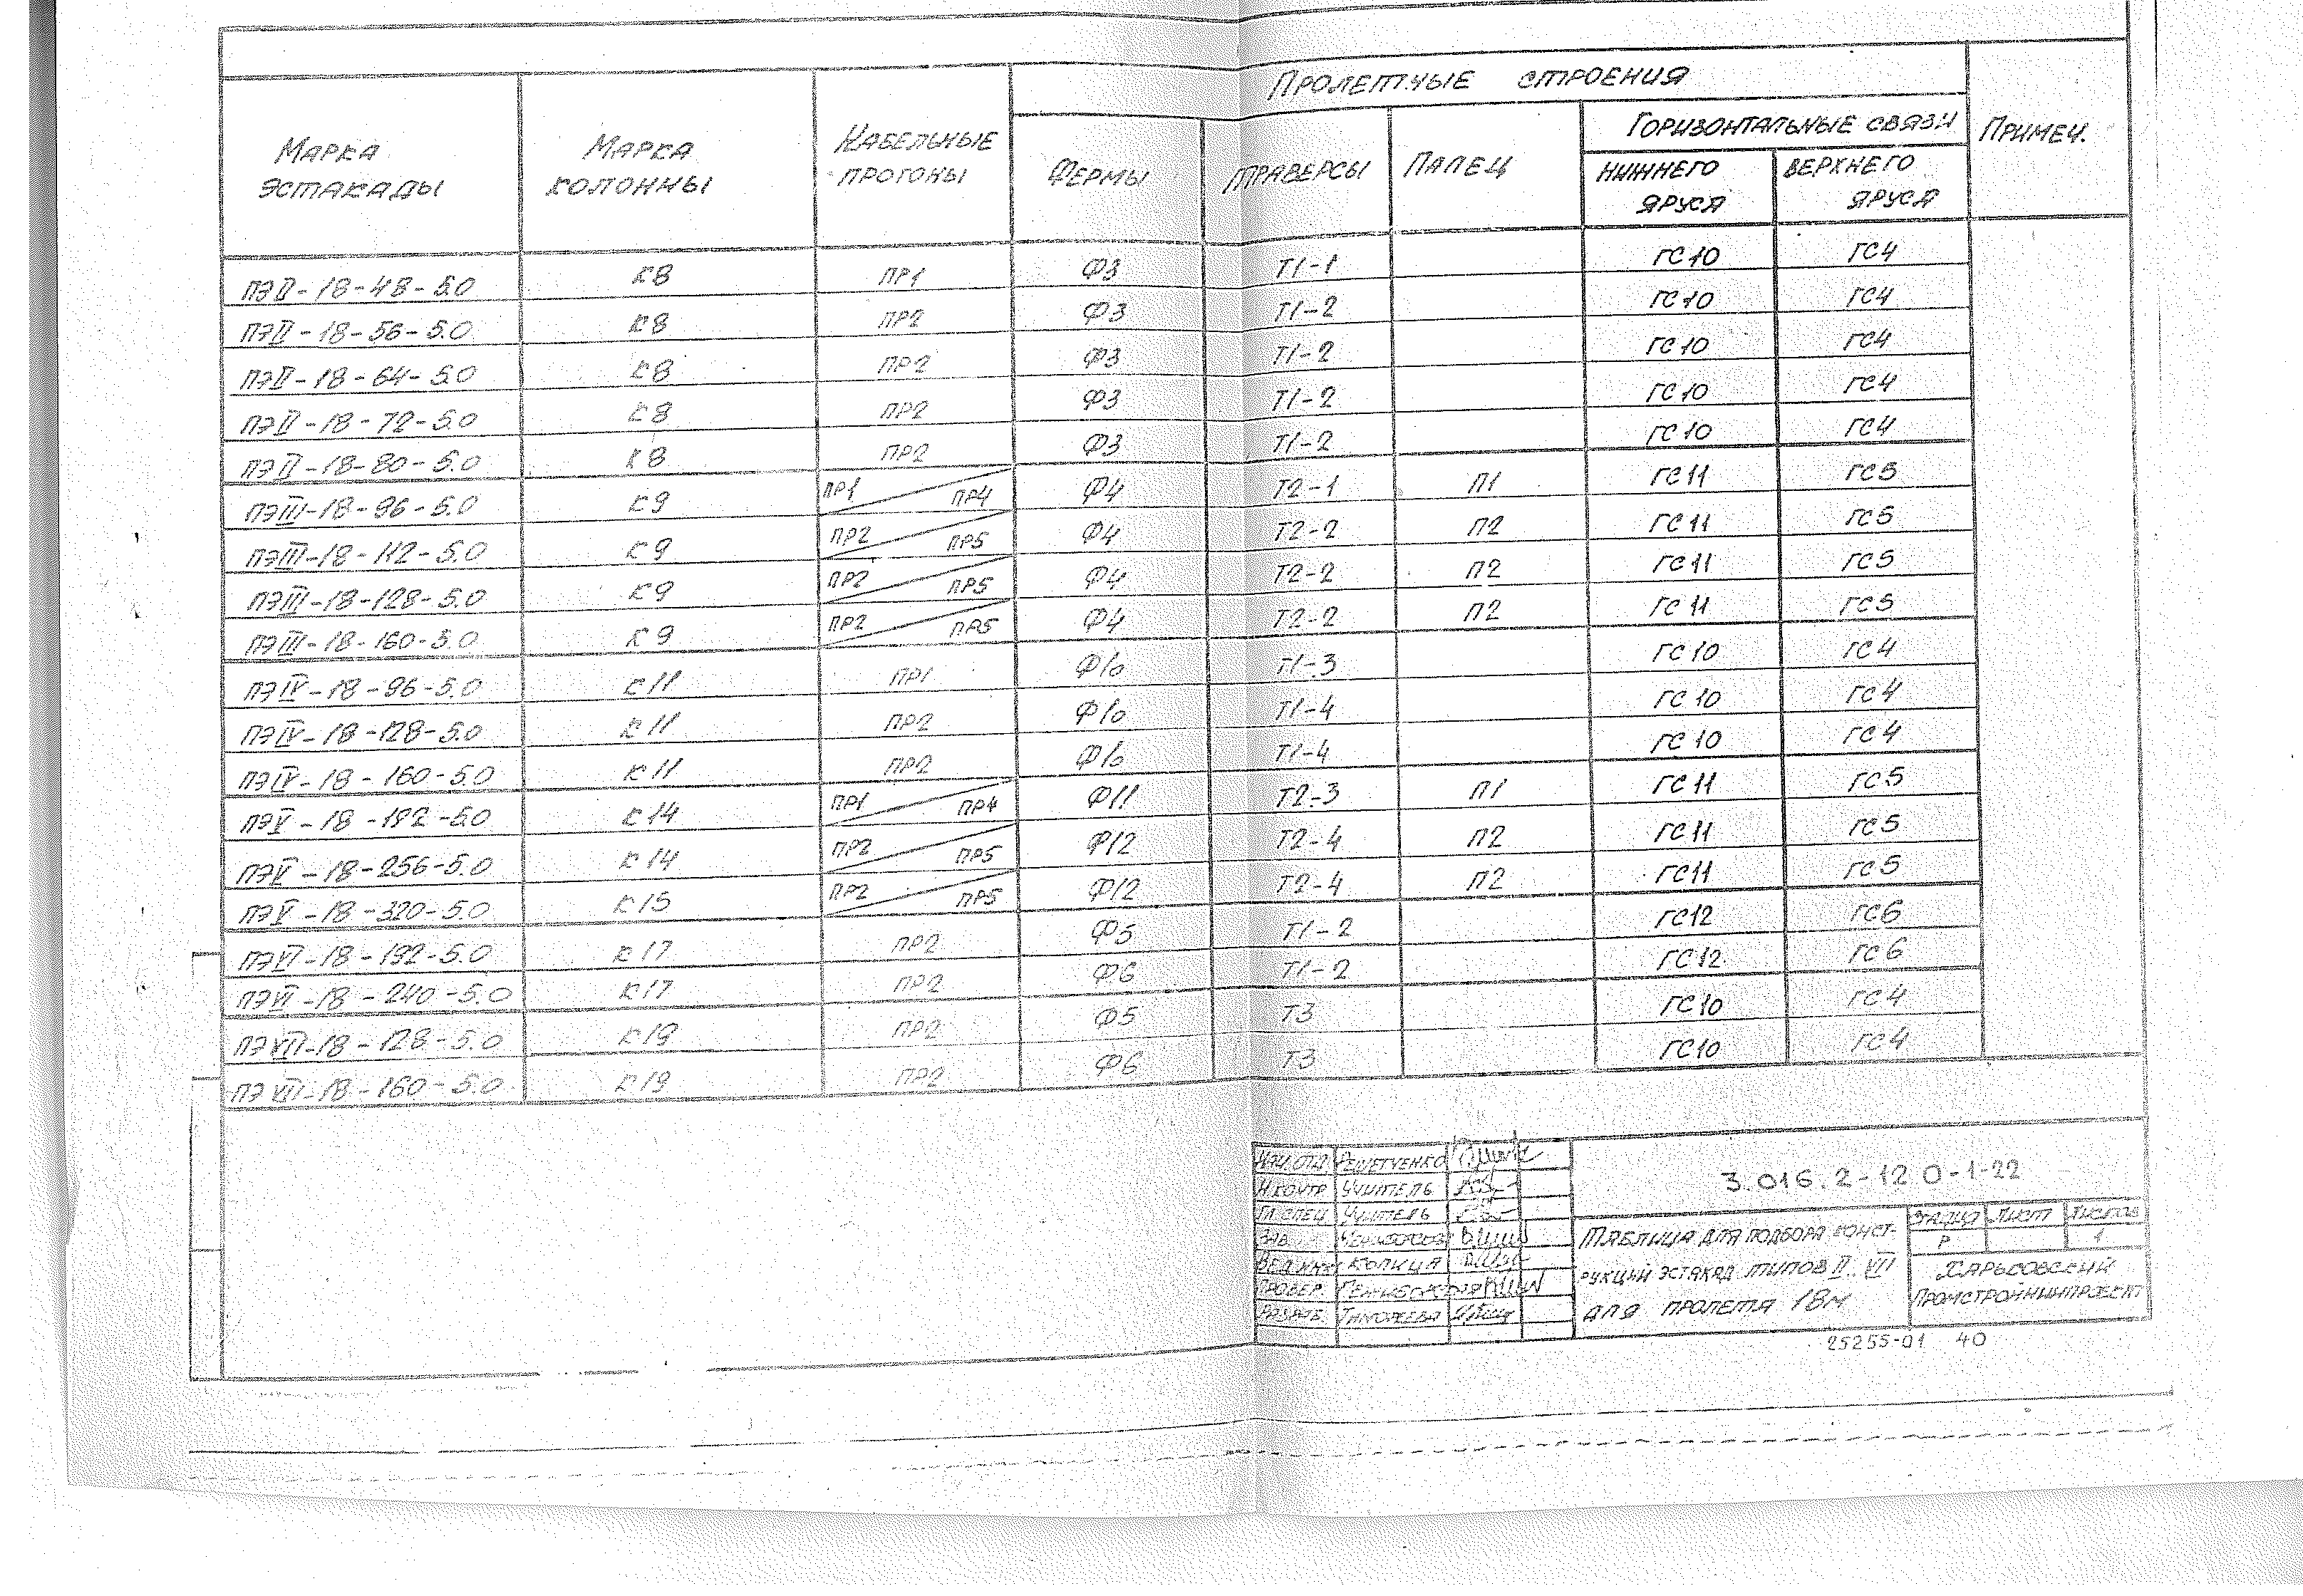 Пролетные строения
Марка эстакады
Марка колонны
Кабельные прогоны
Фермы
Траверсы
Палец
Горизонтальные связи
нижнего яруса
верхнего яруса
Примеч.
ПЭII-18-48-5.0 К8 ПР1 Ф3 Т1-1 ГС10 ГС4
ПЭII-18-56-5.0 К8 ПР2 Ф3 Т1-2 ГС10 ГС4
ПЭII-18-64-5.0 К8 ПР2 Ф3 Т1-2 ГС10 ГС4
ПЭII-18-72-5.0 К8 ПР2 Ф3 Т1-2 ГС10 ГС4
ПЭII-18-80-5.0 К8 ПР2 Ф3 Т1-2 ГС10 ГС4
ПЭIII-18-96-5.0 К9 ПР1 ПР4 Ф4 Т2-1 П1 ГС11 ГС5
ПЭIII-18-112-5.0 К9 ПР2 ПР5 Ф4 Т2-2 П2 ГС11 ГС5
ПЭIII-18-128-5.0 К9 ПР2 ПР5 Ф4 Т2-2 П2 ГС11 ГС5
ПЭIII-18-160-5.0 К9 ПР2 ПР5 Ф4 Т2-2 П2 ГС11 ГС5
ПЭIV-18-96-5.0 К11 ПР1 Ф10 Т1-3 ГС10 ГС4
ПЭIV-18-128-5.0 К11 ПР2 Ф10 Т1-4 ГС10 ГС4
ПЭIV-18-160-5.0 К11 ПР2 Ф10 Т1-4 ГС10 ГС4
ПЭV-18-192-5.0 К14 ПР1 ПР4 Ф11 Т2-3 П1 ГС11 ГС5
ПЭV-18-256-5.0 К14 ПР2 ПР5 Ф12 Т2-4 П2 ГС11 ГС5
ПЭV-18-320-5.0 К15 ПР2 ПР5 Ф12 Т2-4 П2 ГС11 ГС5
ПЭVI-18-192-5.0 К17 ПР2 Ф5 Т1-2 ГС12 ГС6
ПЭVI-18-240-5.0 К17 ПР2 Ф6 Т1-2 ГС12 ГС6
ПЭVII-18-128-5.0 К19 ПР2 Ф5 Т3 ГС10 ГС4
ПЭVII-18-160-5.0 К19 ПР2 Ф6 Т3 ГС10 ГС4
Нач.отд. Решетченко
Н.контр. Учитель
Гл.спец. Учитель
Зав.
Вед.инж. Копица
Провер.
Разраб. Тимофеева
3.016.2-12 0-1-22
Таблица для подбора конст-
рукций эстакад типов II..VII
для пролета 18м
Стадия Лист Листов
Р 1
Харьковский
Промстройниипроект
25255-01 40